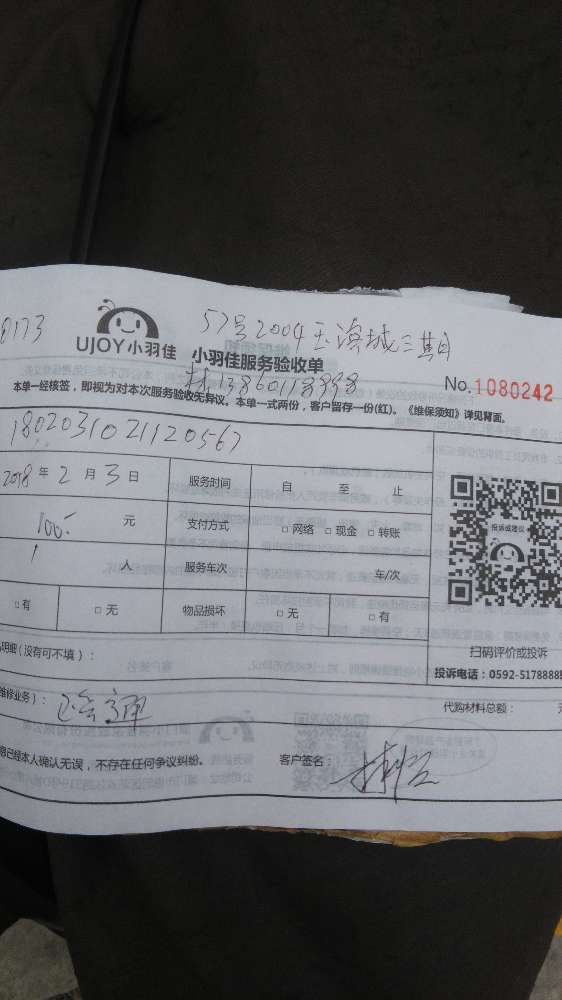 8173
57号2004 玉滨城三期
UJOY小羽佳 小羽佳服务验收单
林 13860118998
No.1080242
本单一经核签，即视为对本次服务验收无异议。本单一式两份，客户留存一份(红)。《维保须知》详见背面。
180203102112056
2018 年 2 月 3 日 服务时间 自 至 止
100 元 支付方式 □ 网络 □ 现金 □ 转账
1 人 服务车次 车/次
投诉或建议
□ 有 □ 无 物品损坏 □ 无 □ 有
扫码评价或投诉
明细 (没有可不填)：
投诉电话：0592-5178888
维修业务)：
代购材料总额：
已经本人确认无误，不存在任何争议纠纷。 客户签名：